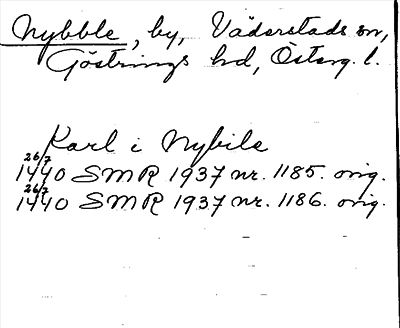 Nybble, by, Väderstads sn,
Göstrings hd, Österg. l.
Karl i Nybile
26/7
1440 SMR 1937 nr. 1185. orig.
26/7
1440 SMR 1937 nr. 1186. orig.